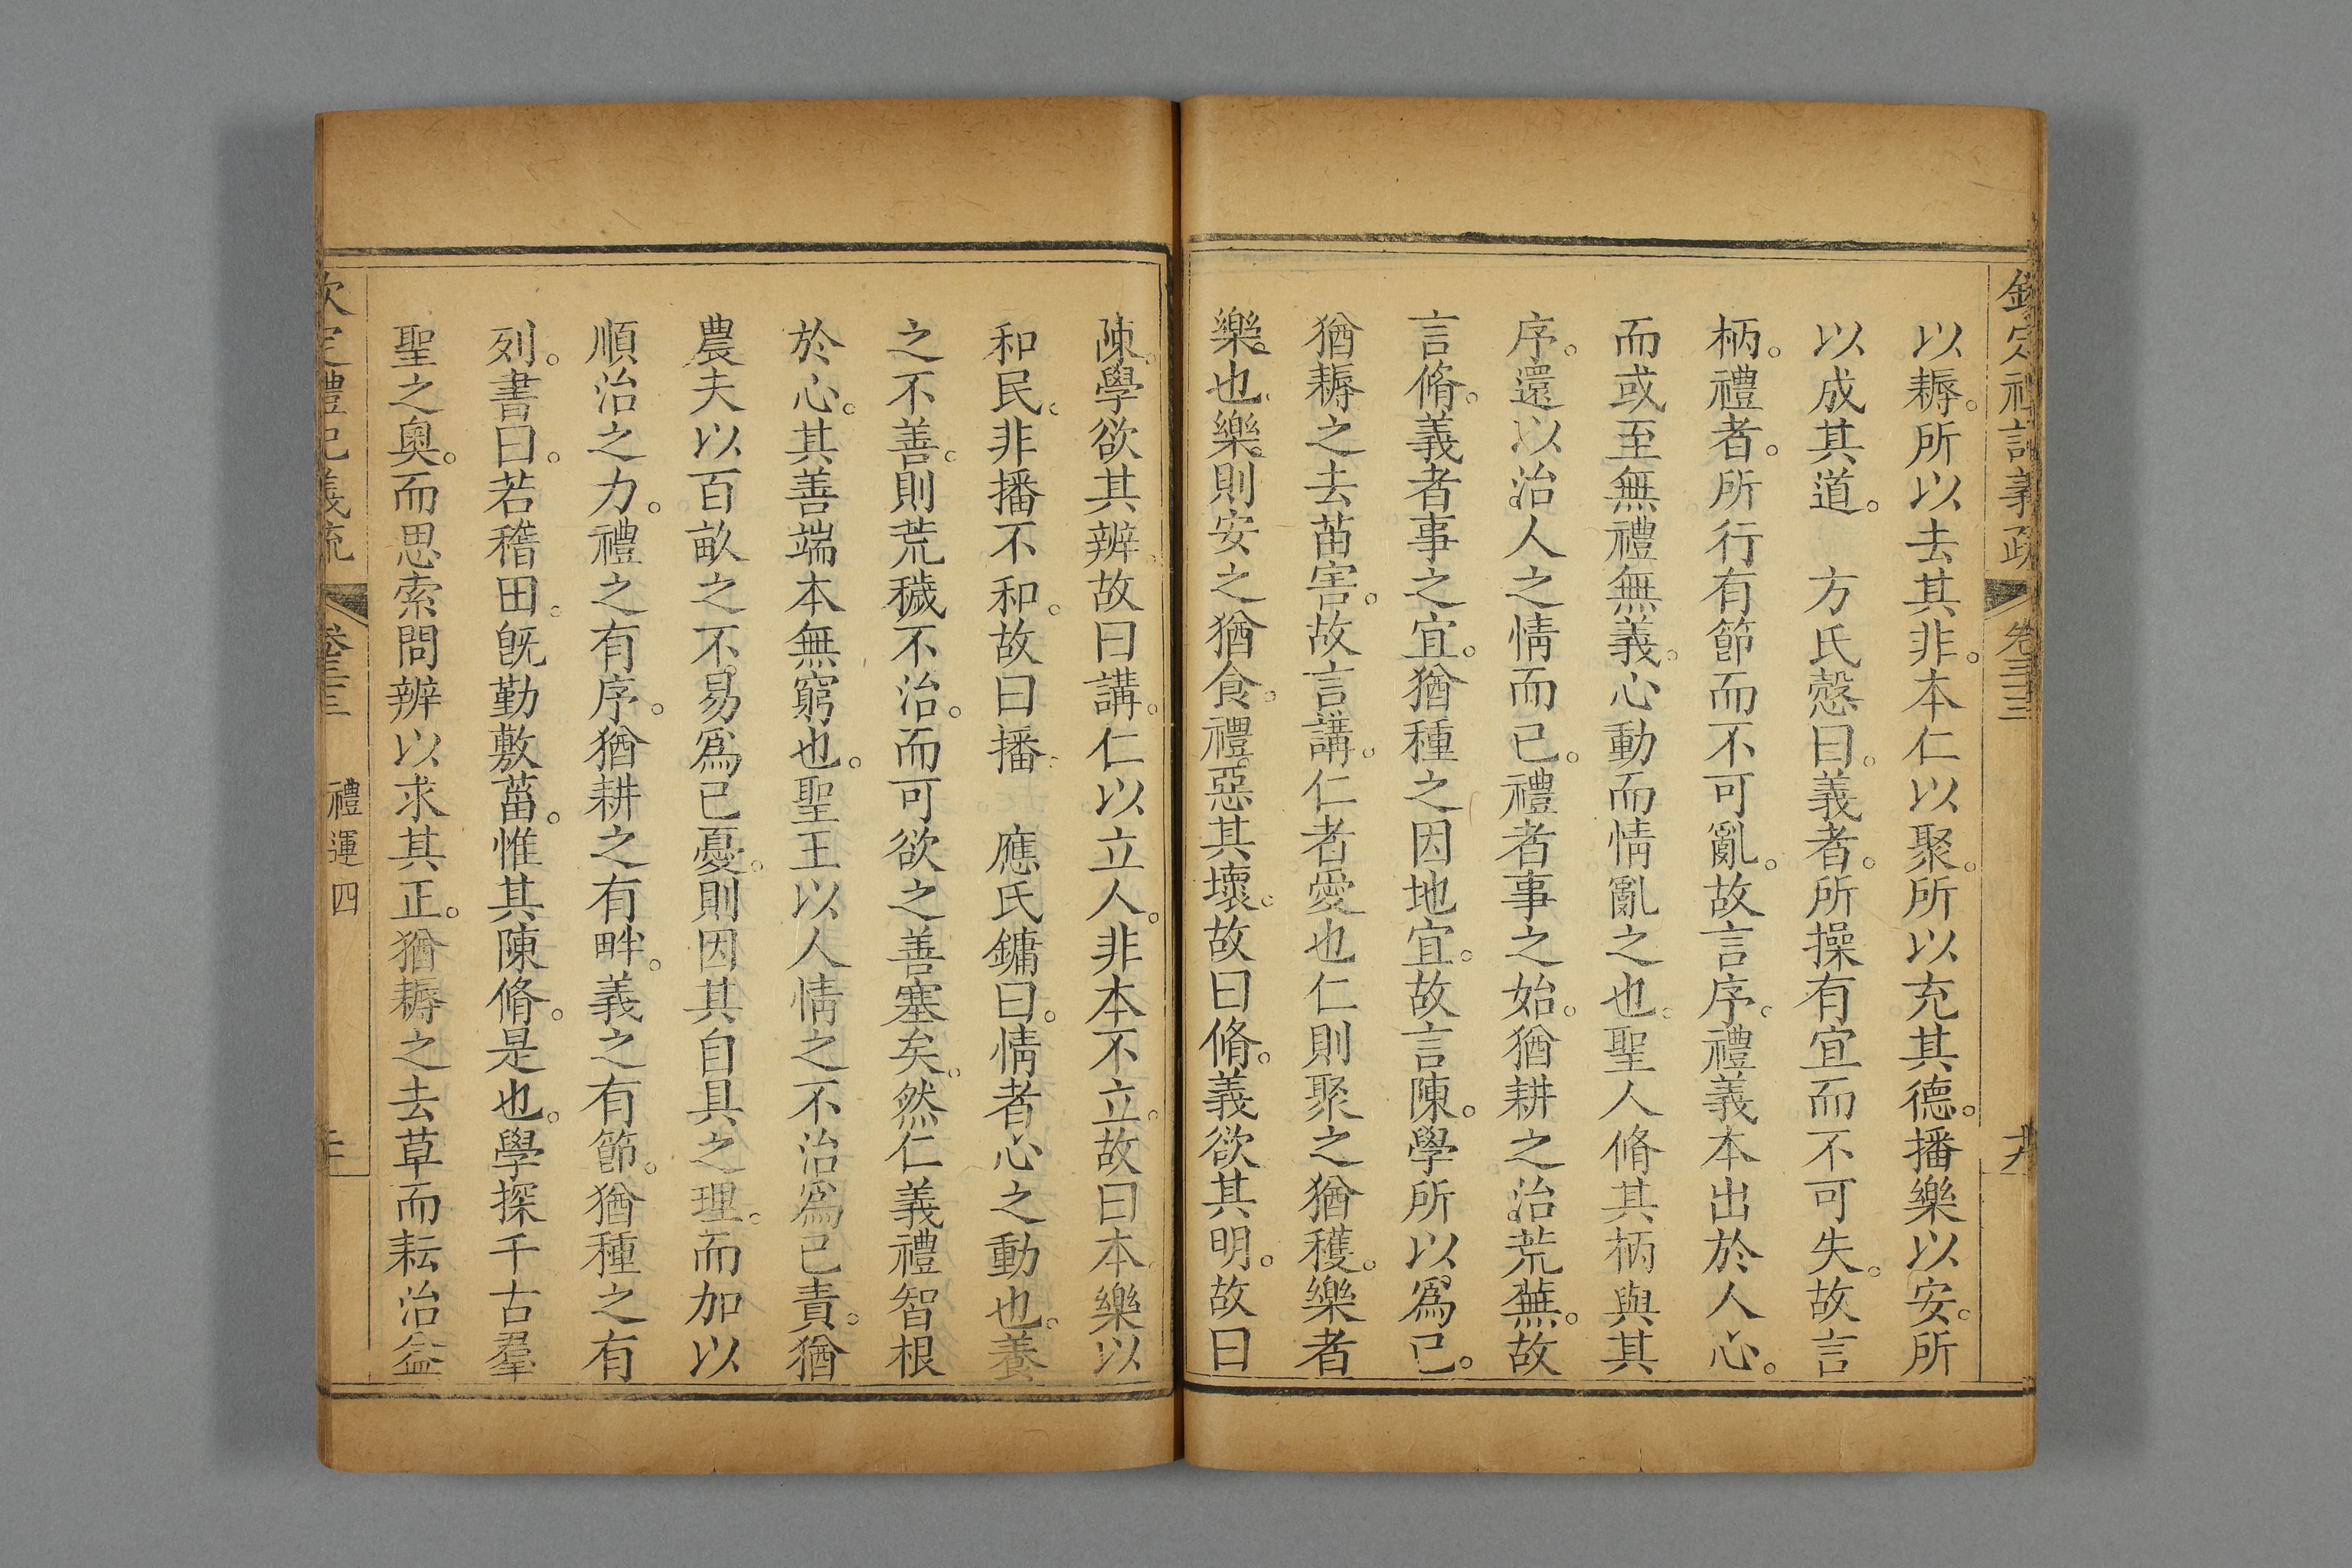 欽定禮記義疏 卷三十三
以耨。所以去其非。本仁以聚。所以充其德。播樂以安。所
以成其道。 方氏慤曰。義者。所操有宜而不可失。故言
柄。禮者。所行有節而不可亂。故言序。禮義本出於人心。
而或至無禮無義。心動而情亂之也。聖人脩其柄與其
序。還以治人之情而已。禮者事之始。猶耕之治荒蕪。故
言脩。義者事之宜。猶種之因地宜。故言陳。學所以爲已。
猶耨之去苗害。故言講。仁者愛也仁則聚之猶穫。樂者
樂也。樂則安之猶食。禮惡其壞。故曰脩。義欲其明。故曰
陳。學欲其辨。故曰講。仁以立人。非本不立。故曰本樂以
和民。非播不和。故曰播。 應氏鏞曰。情者心之動也。養
之不善。則荒穢不治。而可欲之善塞矣。然仁義禮智根
於心。其善端本無窮也。聖王以人情之不治爲已責。猶
農夫以百畝之不易爲已憂。則因其自具之理。而加以
順治之力。禮之有序。猶耕之有畔。義之有節。猶種之有
列。書曰。若稽田。旣勤敷菑。惟其陳脩。是也。學探千古羣
聖之奥。而思索問辨以求其正。猶耨之去草而耘治益
欽定禮記義疏 卷三十三 禮運四